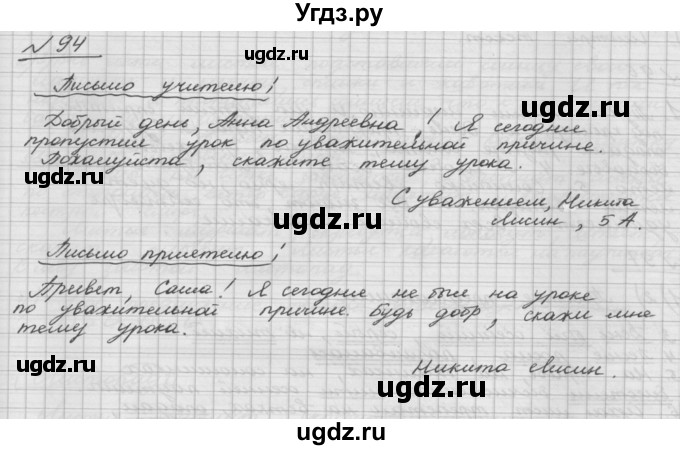 Угдз.ру
№ 94
Письмо учителю!
Добрый день, Анна Андреевна! Я сегодня
пропустил урок по уважительной причине.
Пожалуйста, скажите тему урока.
С уважением, Никита
Лисин, 5 А.
Письмо приятелю!
Привет, Саша! Я сегодня не был на уроке
по уважительной причине. Будь добр, скажи мне
тему урока.
Никита Лисин.
ugdz.ru
ugdz.ru
ugdz.ru
ugdz.ru
ugdz.ru
ugdz.ru
ugdz.ru
ugdz.ru
ugdz.ru
ugdz.ru